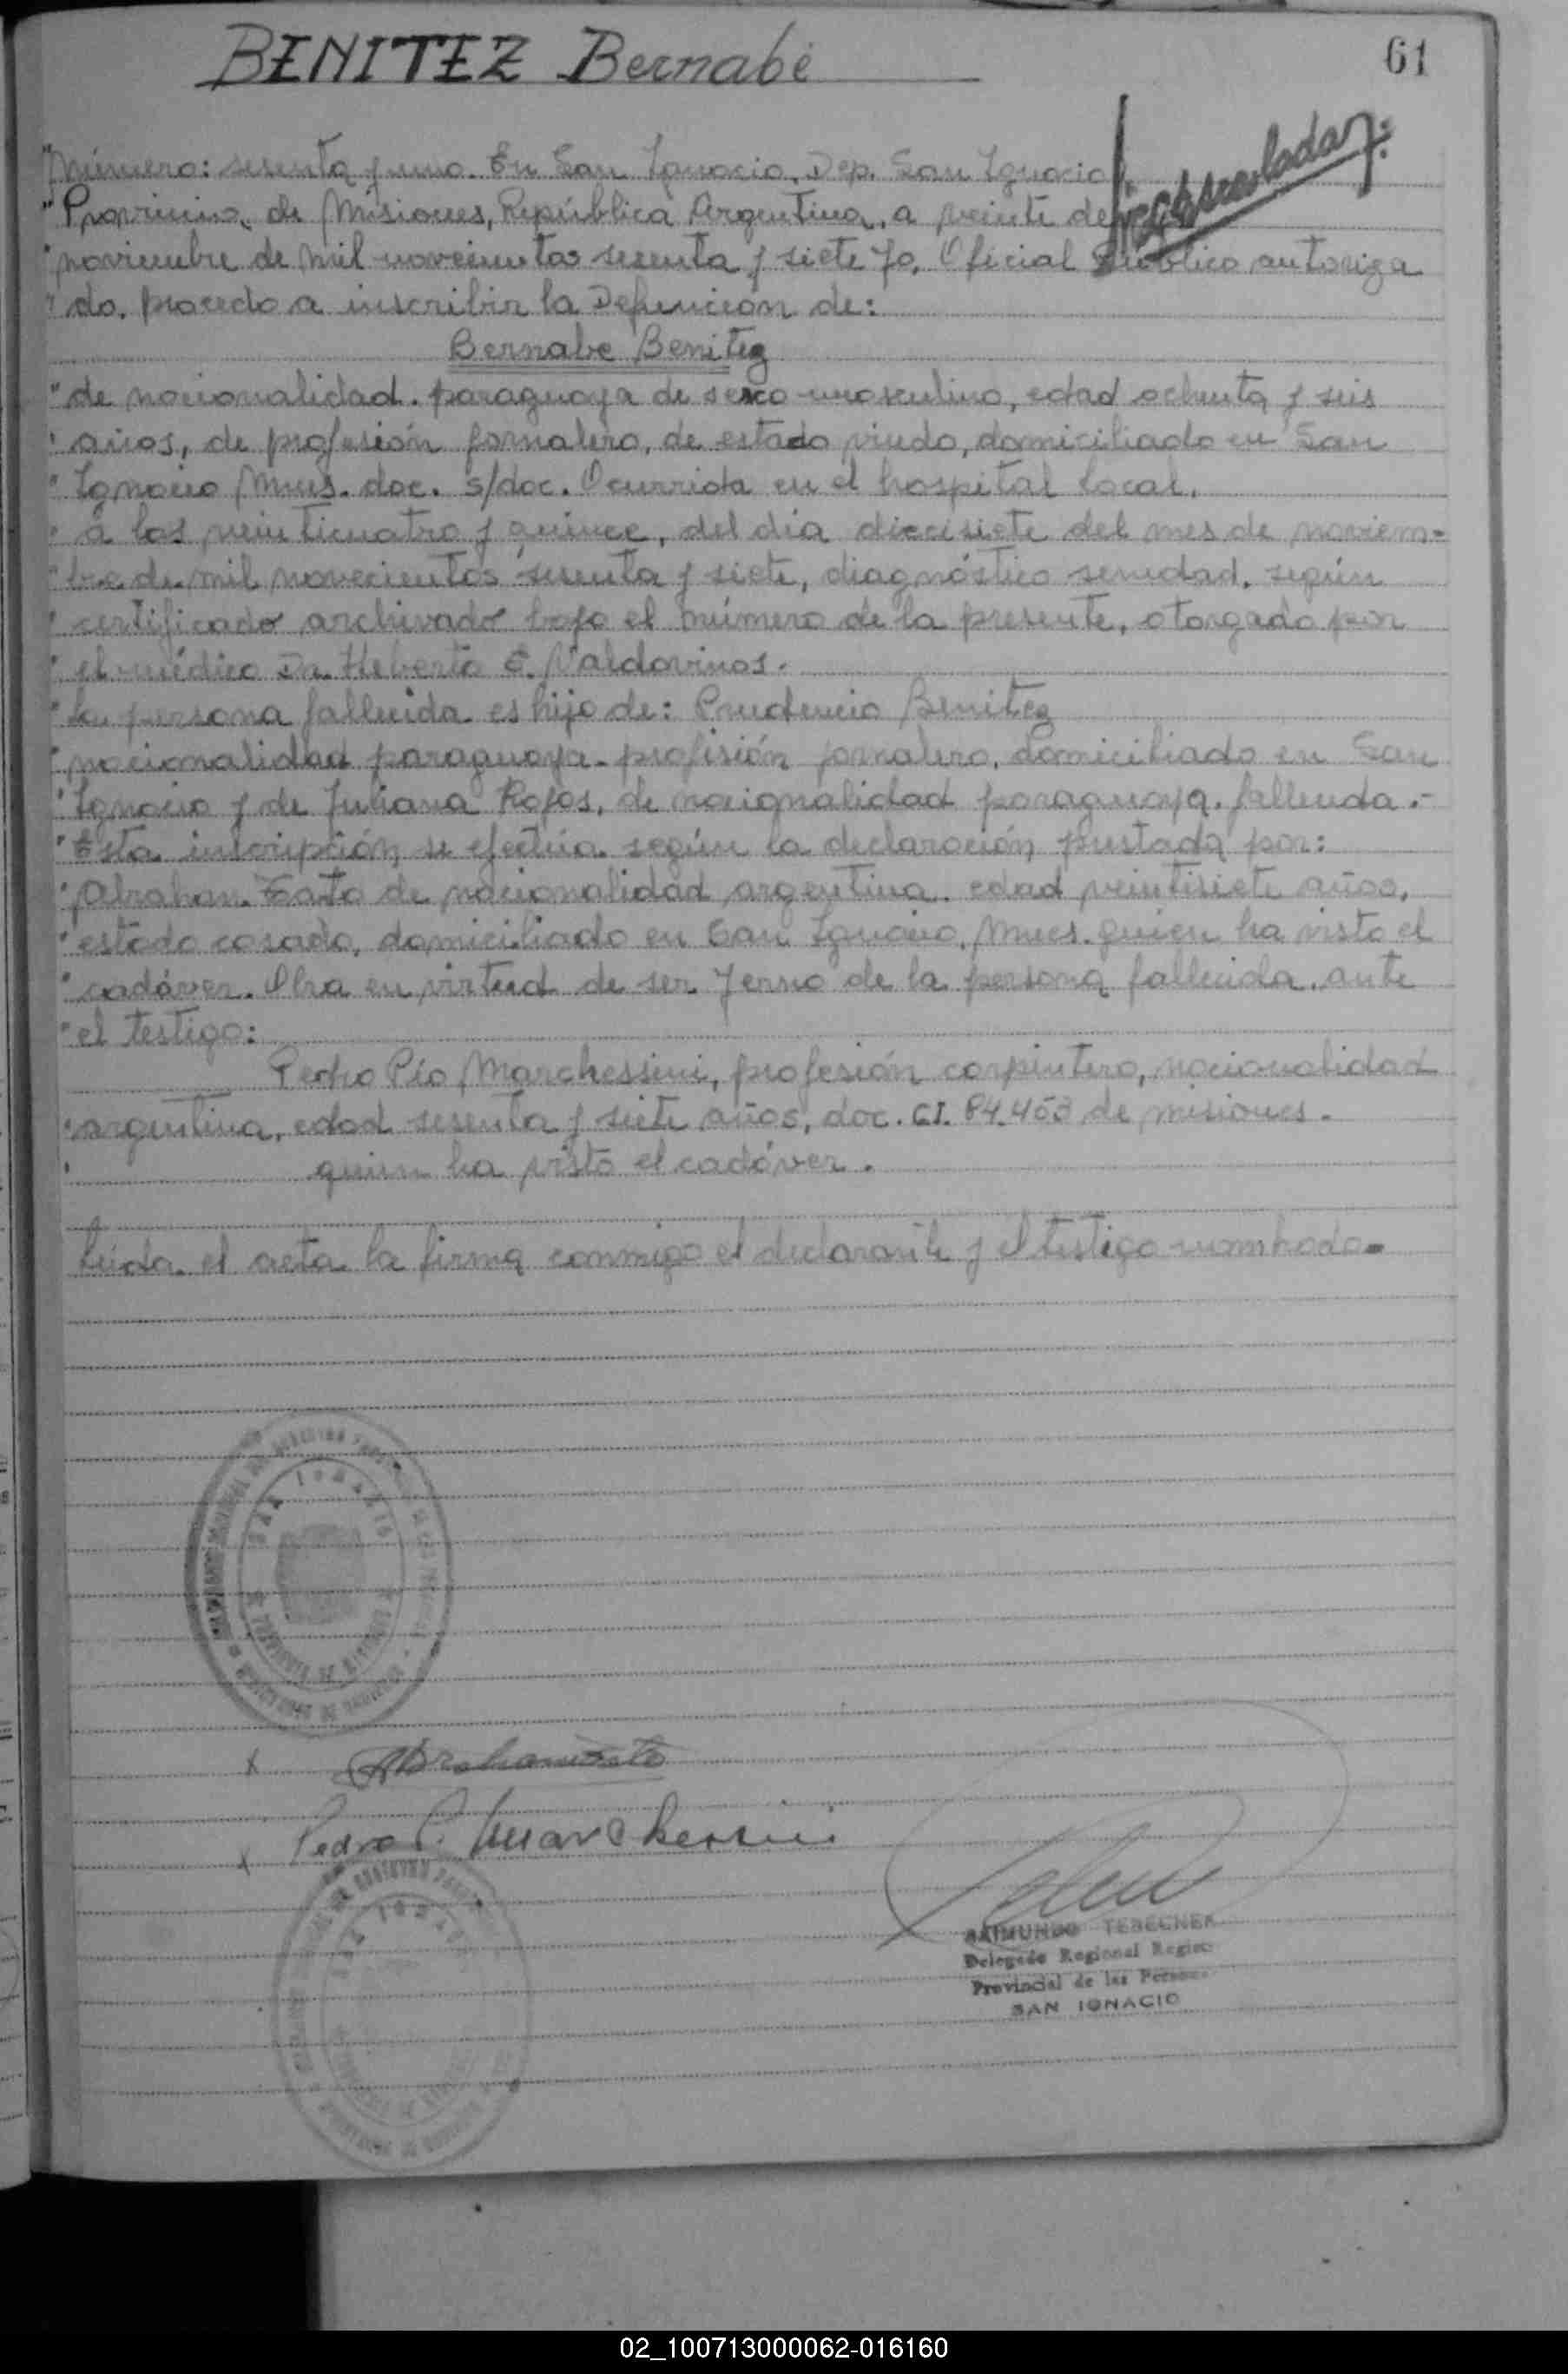 BENITEZ Bernabé
61
Número: sesenta y uno. En San Ignacio, Dep. San Ignacio
Provincia de Misiones, República Argentina, a veinte de
noviembre de mil novecientos sesenta y siete yo, Oficial Público autoriza
do, procedo a inscribir la Defunción de:
Bernabe Benitez
de nacionalidad paraguaya de sexo masculino, edad ochenta y seis
años, de profesión jornalero, de estado viudo, domiciliado en San
Ignacio Mnes. doc. s/doc. Ocurrida en el hospital local.
a las veinticuatro y quince, del día diecisiete del mes de noviem-
bre de mil novecientos sesenta y siete, diagnóstico senedad, según
certificado archivado bajo el número de la presente, otorgado por
el médico Dr. Heberto C. Valdovinos.
La persona fallecida es hijo de: Prudencio Benitez
nacionalidad paraguaya profisión jornalero, domiciliado en San
Ignacio y de Juliana Rojas, de nacionalidad paraguaya, fallecida.-
Esta incripción se efectúa según la declaración prestada por:
Abrahan Sato de nacionalidad argentina edad veintisiete años,
estado casado, domiciliado en San Ignacio, Mnes. quien ha visto el
cadáver. Obra en virtud de ser Yerno de la persona fallecida, ante
el testigo:
Pedro Pío Marchessini, profesión carpintero, nacionalidad
argentina, edad sesenta y siete años, doc. CI. de misiones.
quien ha visto el cadáver.
Leida el acta la firma conmigo el declarante y el testigo nombrado-
SAN IGNACIO
PROVINCIA DE MISIONES
Pedro P. Marchessini
RAIMUNDO
Delegado Regional
Provincial de las
SAN IGNACIO
02_100713000062-016160